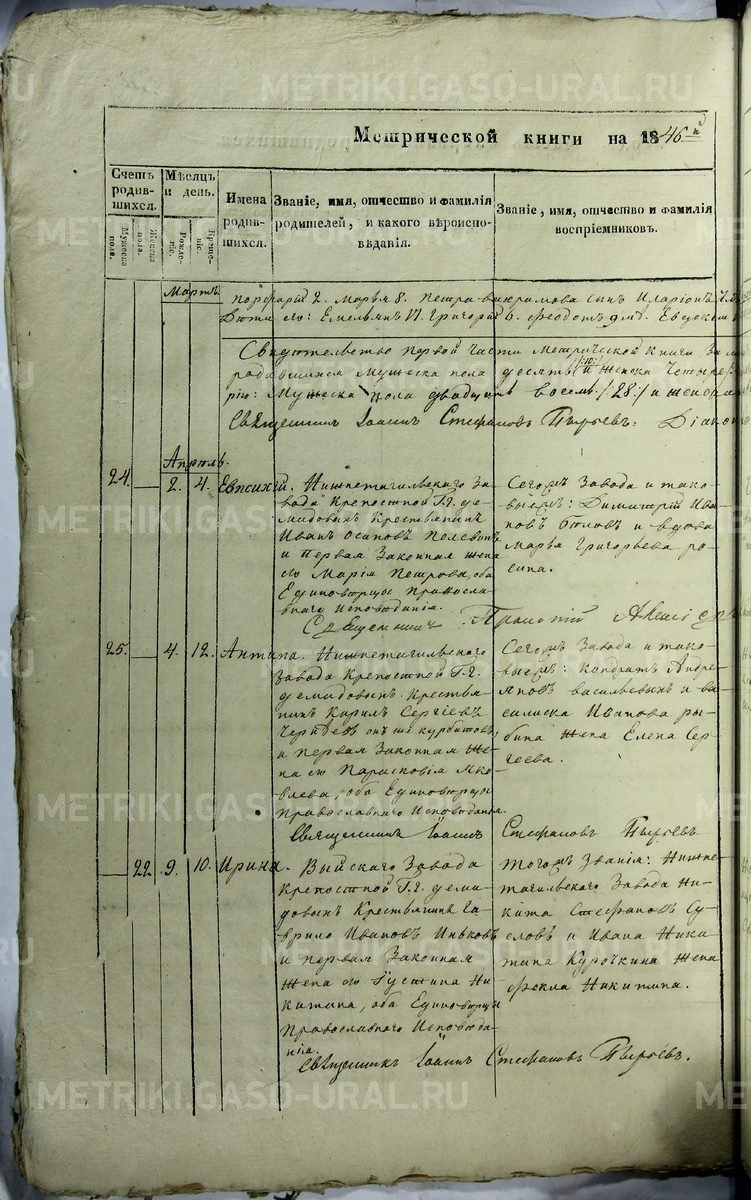 METRIKI.GASO-URAL.RU
Метрической книги на 1846й
Счетъ родив-шихся.
Мужеска пола.
Женска пола.
Мѣсяцъ и день.
Рожде-ніе.
Креще-ніе.
Имена родив-шихся.
Званіе, имя, отчество и фамилія родителей, и какого вѣроиспо-вѣданія.
Званіе, имя, отчество и фамилія воспріемниковъ.
Мартъ
Порфирій 2. Марья 8. Петра сынъ Иларіонъ
Дѣти его: Емельянъ 17. Григорій 6. Федотъ Евдоким
Свидѣтельство первой части Метрической книги
родившихся Мужеска пола десять /:10:/ и Женска Четыре
рію: Мужеска пола двадцать восемь /:28:/ и женска
Священникъ Іоаннъ Стефановъ Пырьевъ. Діаконъ
Апрѣль.
24. — 2. 4. Евпсихій.
Нижнетагильскаго За-
вода Крепостной Г.г. де-
мидовыхъ Крестьянинъ
Иванъ Осиповъ Пелевинъ
и Первая Законная жена
его Марія Петрова, оба
Единовѣрцы Православ-
наго Исповѣданія.
Сегожъ Завода и тако-
выежъ: Димитрій Ива-
новъ Бѣловъ и вдова
Марья Григорьева
Священникъ Прокопій
25. — 4. 12. Антипа.
Нижнетагильскаго
Завода Крепостной Г.г.
демидовыхъ Крестья-
нинъ Кирилъ Сергіевъ
онъ же Курбатовъ,
и первая Законная Же-
на его Парасковія Яко-
влева, оба Единовѣрцы
Православнаго Исповѣданія.
Сегожъ Завода и тако-
выежъ: Кондратъ Андре-
яновъ Васильевыхъ и Ва-
силиска Иванова Ры-
бина Жена Елена Сер-
геева.
Священникъ Іоаннъ Стефановъ Пырьевъ
— 22. 9. 10. Ирина.
Выйскаго Завода
Крепостной Г.г. деми-
довыхъ Крестьянинъ Га-
врило Ивановъ Ивковъ
и первая Законная
Жена его Іустина Ни-
китина, оба Единовѣрцы
Православнаго Исповѣда-
нія.
Тогожъ Званія: Нижне-
тагильскаго Завода Ни-
кита Стефановъ Су-
словъ и Ивана Ники-
тина Курочкина Жена
Фекла Никитина.
Священникъ Іоаннъ Стефановъ Пырьевъ.
METRIKI.GASO-URAL.RU